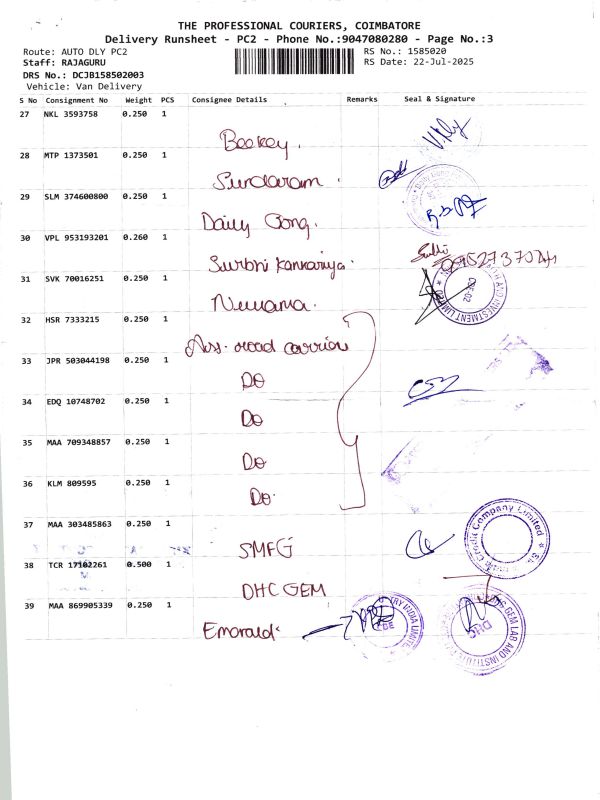 THE PROFESSIONAL COURIERS, COIMBATORE
Delivery Runsheet - PC2 - Phone No.:9047080280 - Page No.:3
Route: AUTO DLY PC2
RS No.: 1585020
Staff: RAJAGURU
RS Date: 22-Jul-2025
DRS No.: DCJB158502003
Vehicle: Van Delivery
S No Consignment No Weight PCS Consignee Details Remarks Seal & Signature
27 NKL 3593758 0.250 1
28 MTP 1373501 0.250 1
Sundaram.
29 SLM 374600800 0.250 1
Daily
30 VPL 953193201 0.260 1
Surbhi Kankariya.
31 SVK 70016251 0.250 1
32 HSR 7333215 0.250 1
Ass. road carrier
33 JPR 503044198 0.250 1
Do
34 EDQ 10748702 0.250 1
Do
35 MAA 709348857 0.250 1
Do
36 KLM 809595 0.250 1
Do.
37 MAA 303485863 0.250 1
SMFG
Credit Company Limited
38 TCR 17102261 0.500 1
DHC GEM
GEM LAB AND INSTITUTE
DHC
39 MAA 869905339 0.250 1
Emerald.
INDIA LIMITED